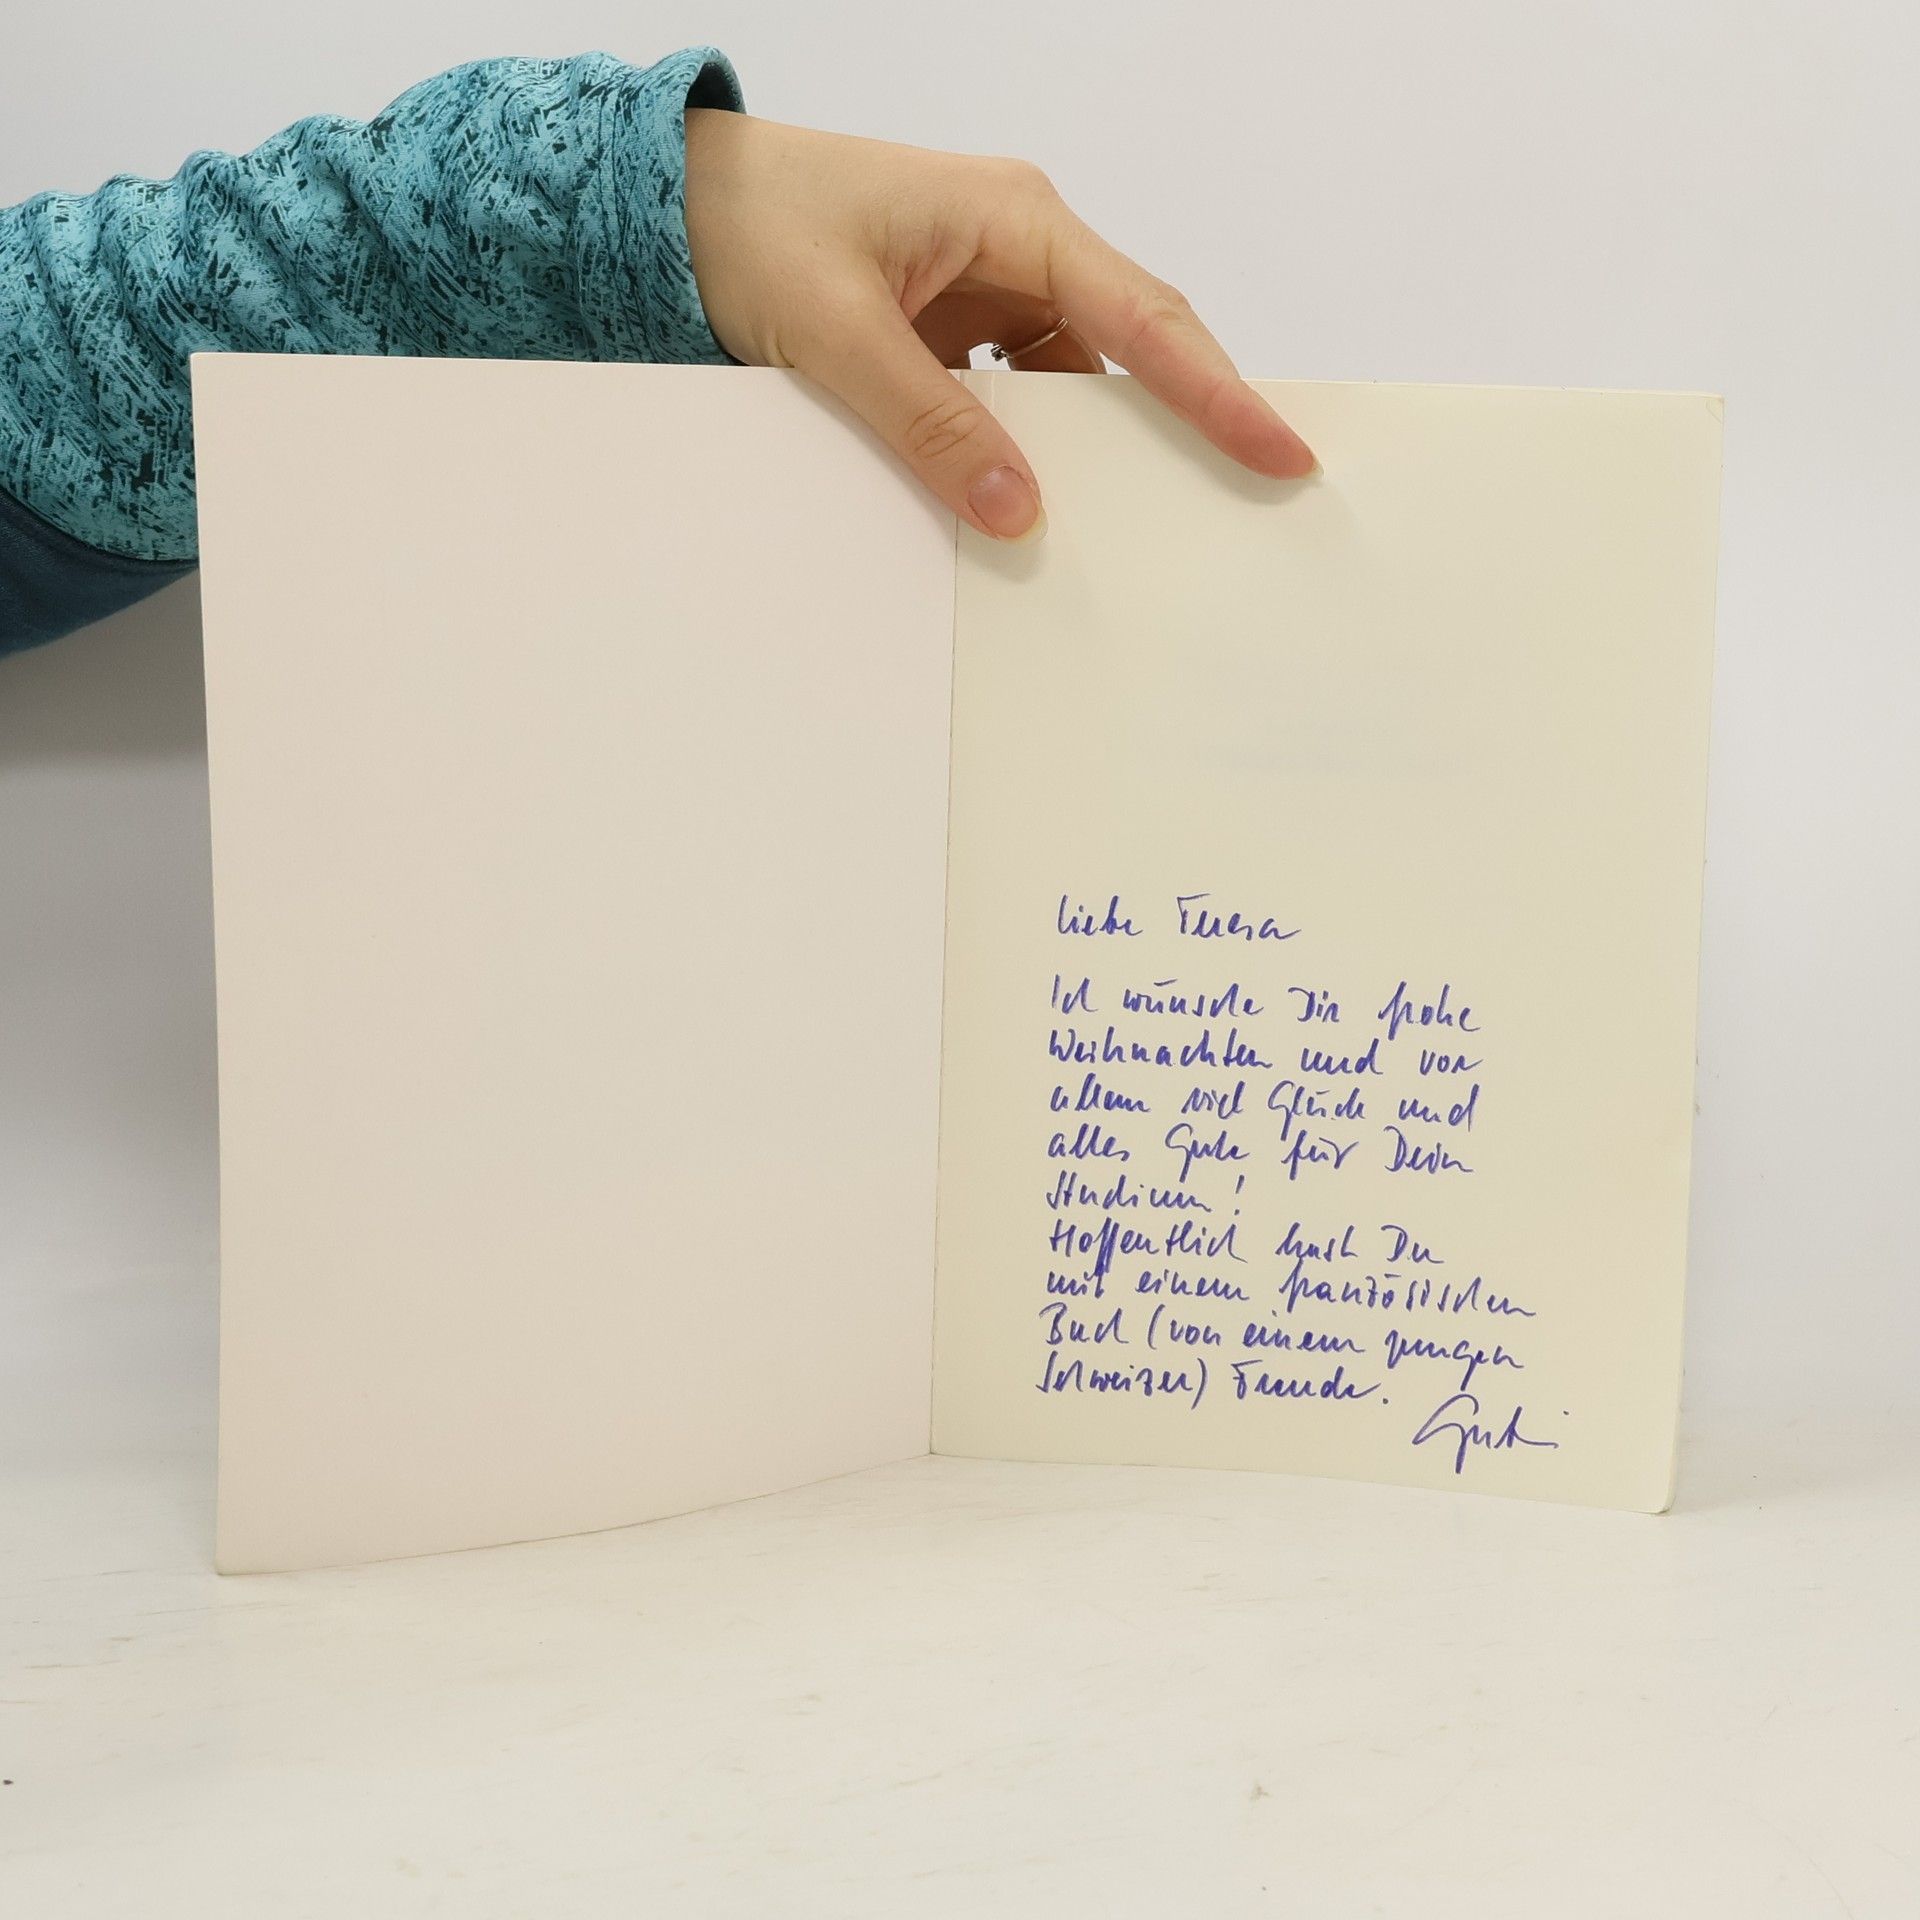 liebe Teresa
Ich wünsche Dir frohe
Weihnachten und vor
allem viel Glück und
alles Gute für Dein
Studium!
Hoffentlich hast Du
mit einem französischen
Buch (von einem jungen
Schweizer) Freude.